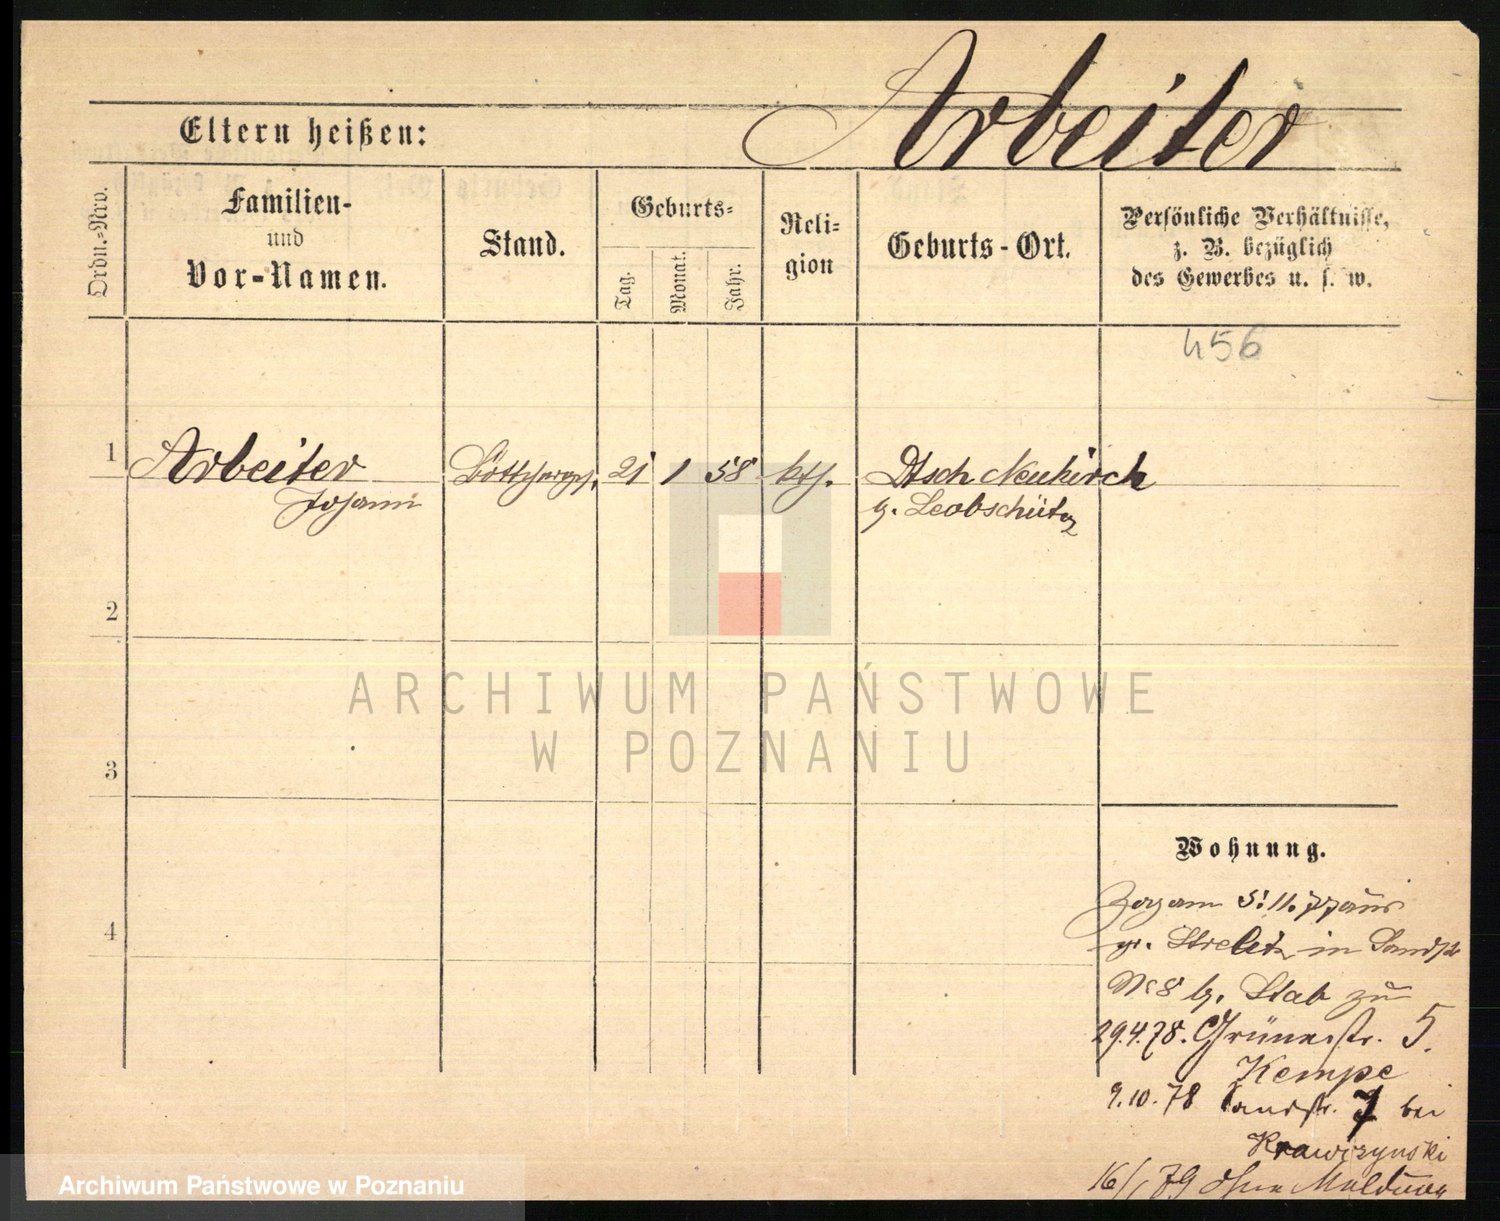 Arbeiter
Eltern heißen:
Ordn.-Nro.
Familien-
und
Vor-Namen.
Stand.
Geburts-
Tag.
Monat.
Jahr.
Reli-
gion
Geburts-Ort.
Persönliche Verhältnisse,
z. B. bezüglich
des Gewerbes u. s. w.
456
1 Arbeiter Böttcherges. 21 1 58 kth. Dtsch Neukirch
Johann g. Leobschütz
2
3
4
ARCHIWUM PAŃSTWOWE
W POZNANIU
Wohnung.
Zugam 5.11.77 aus
gr. Strelitz in Sandstr
No 8 b. Stab zu
29.4.78. Grünestr. 5.
Kempe
9.10.78 Sandstr. 7 bei
Krawczynski
16/1 79 ohne Meldung
Archiwum Państwowe w Poznaniu